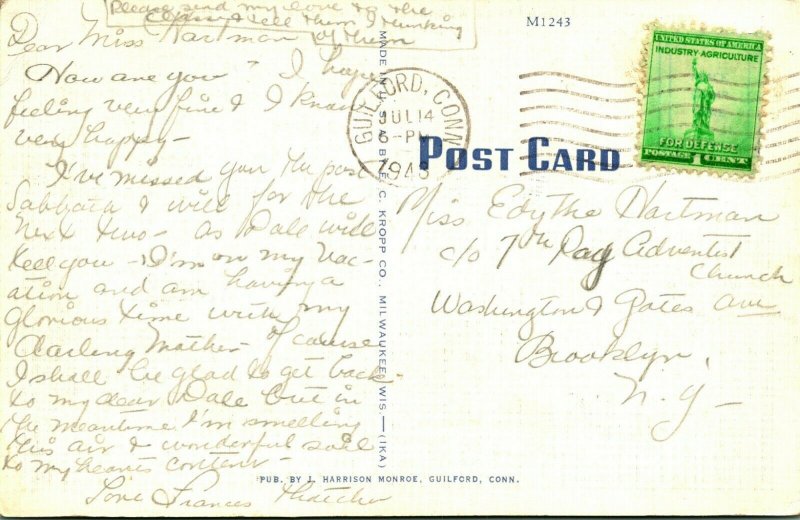 Please send my love to the
class & tell them I thinking
of them
Dear Miss Hartman
How are you? I hope
feeling very fine & I know
very happy—
I've missed you the past
Sabbath & will for the
next two— as Dale will
tell you— I'm on my vac-
ation and am having a
glorious time with my
darling Mother— of course
I shall be glad to get back
to my dear Dale but in
the meantime I'm smelling
this air & wonderful soil
to my hearts content—
Love Frances Thatcher
MADE IN U. S. A. BY E. C. KROPP CO., MILWAUKEE, WIS.—(IKA)
M1243
GUILFORD, CONN.
JUL 14
6-PM
1943
POST CARD
UNITED STATES OF AMERICA
INDUSTRY-AGRICULTURE
FOR DEFENSE
POSTAGE 1 CENT
Miss Edythe Hartman
c/o 7th Day Adventist
Church
Washington & Gates Ave
Brooklyn,
N. Y—
PUB. BY J. HARRISON MONROE, GUILFORD, CONN.